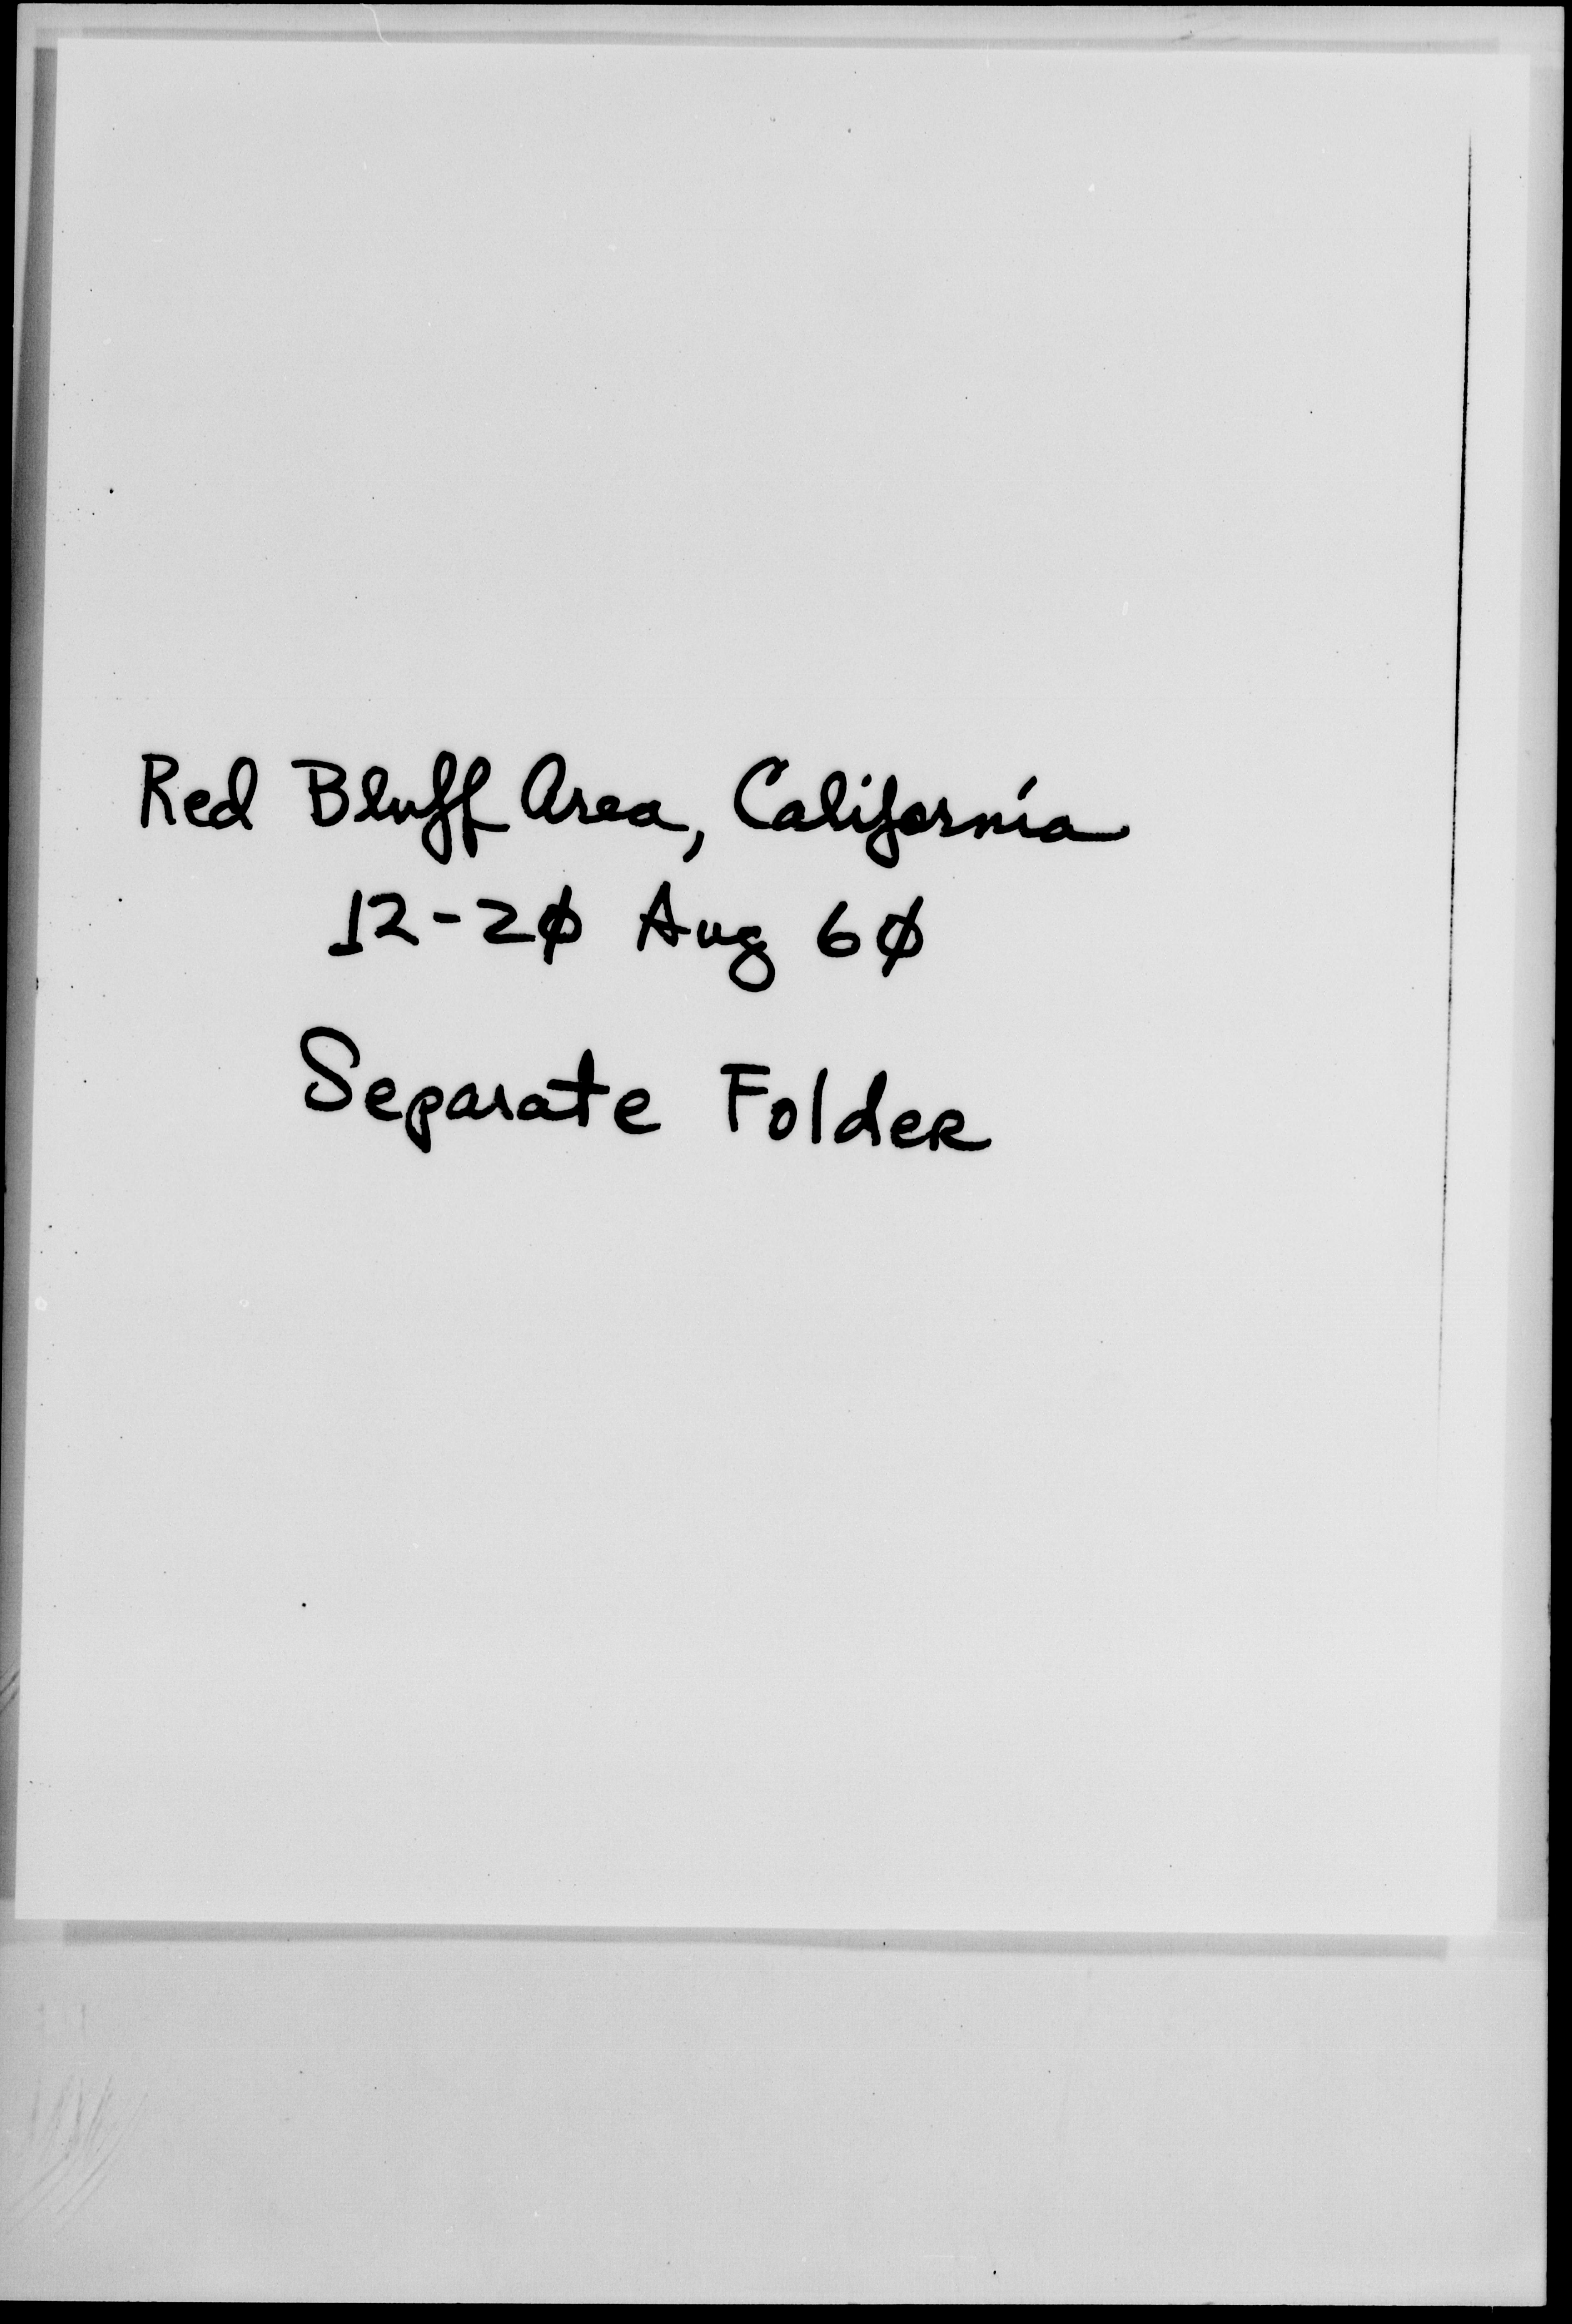 Red Bluff Area, California
12-2Ø Aug 6Ø
Separate Folder